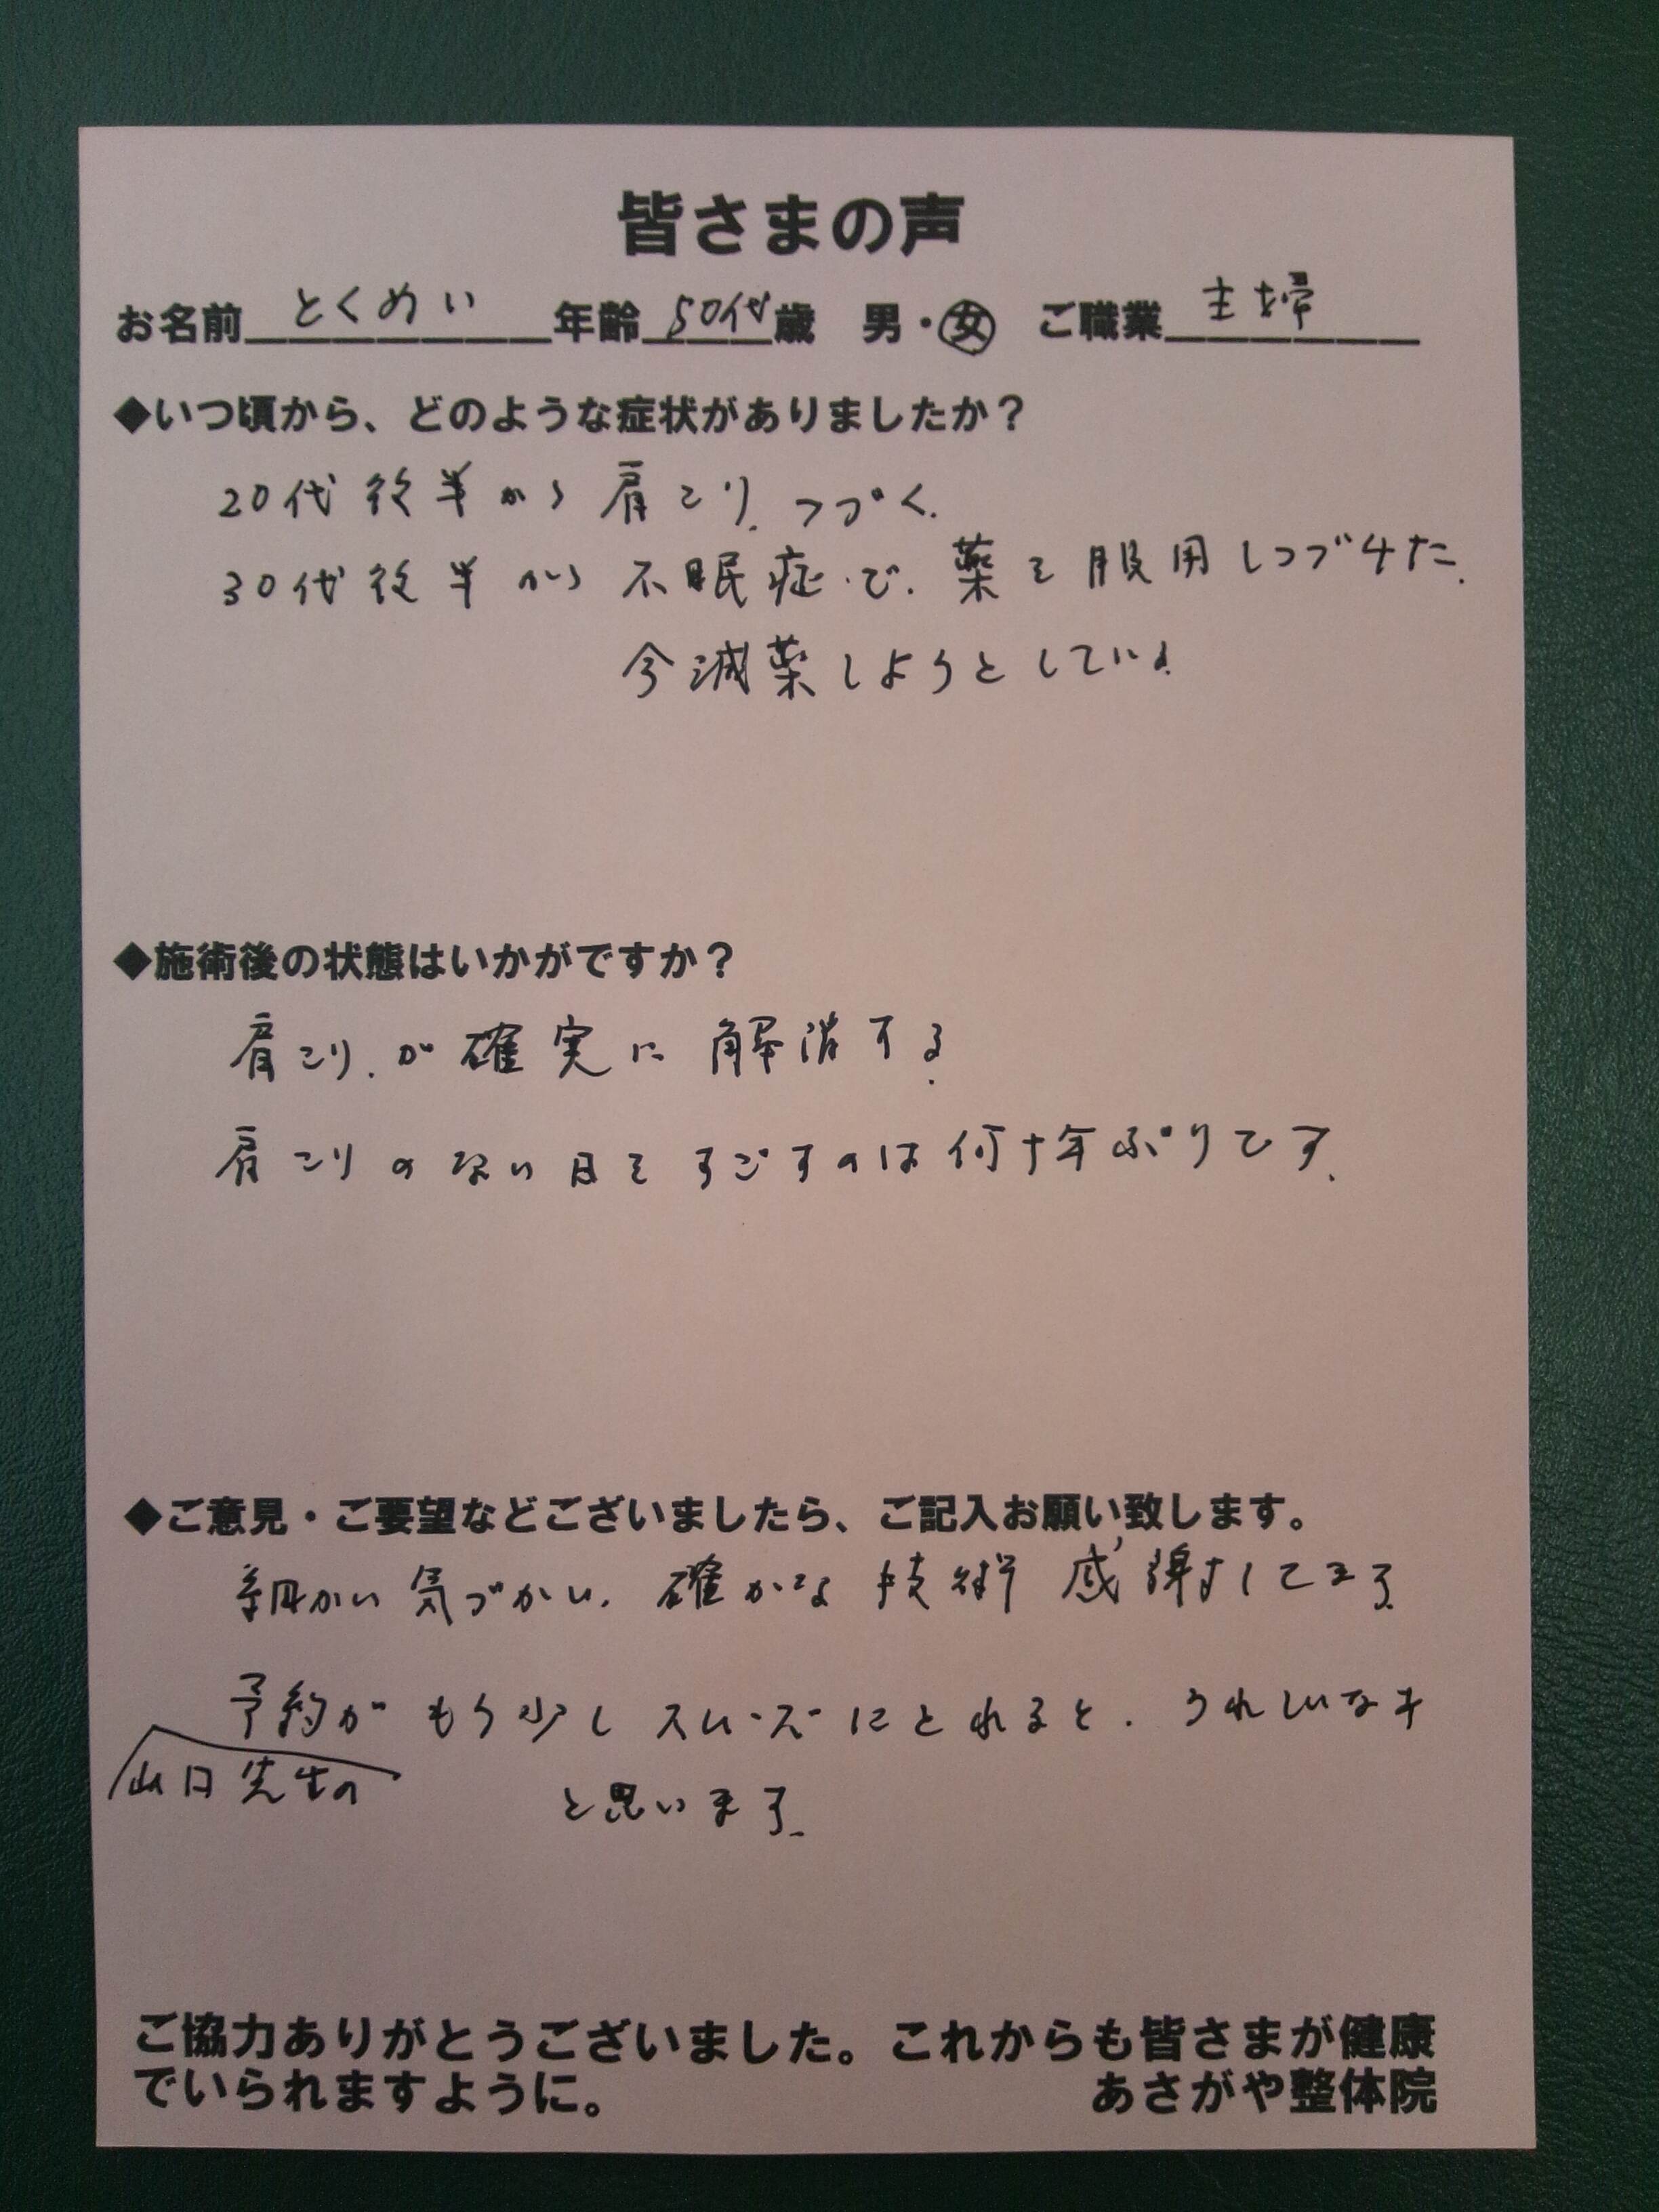 皆さまの声
お名前 とくめい 年齢 50代 歳 男・女 ご職業 主婦
◆いつ頃から、どのような症状がありましたか？
20代後半から肩こり.つづく.
30代後半から不眠症で.薬を服用しつづけた.
今減薬しようとしている.
◆施術後の状態はいかがですか？
肩こり.が確実に解消する.
肩こりのない日をすごすのは何十年ぶりです.
◆ご意見・ご要望などございましたら、ご記入お願い致します。
細かい気づかい.確かな技術 感謝してます
予約がもう少しスムーズにとれると.うれしいなォ
山口先生の
と思います.
ご協力ありがとうございました。これからも皆さまが健康
でいられますように。 あさがや整体院